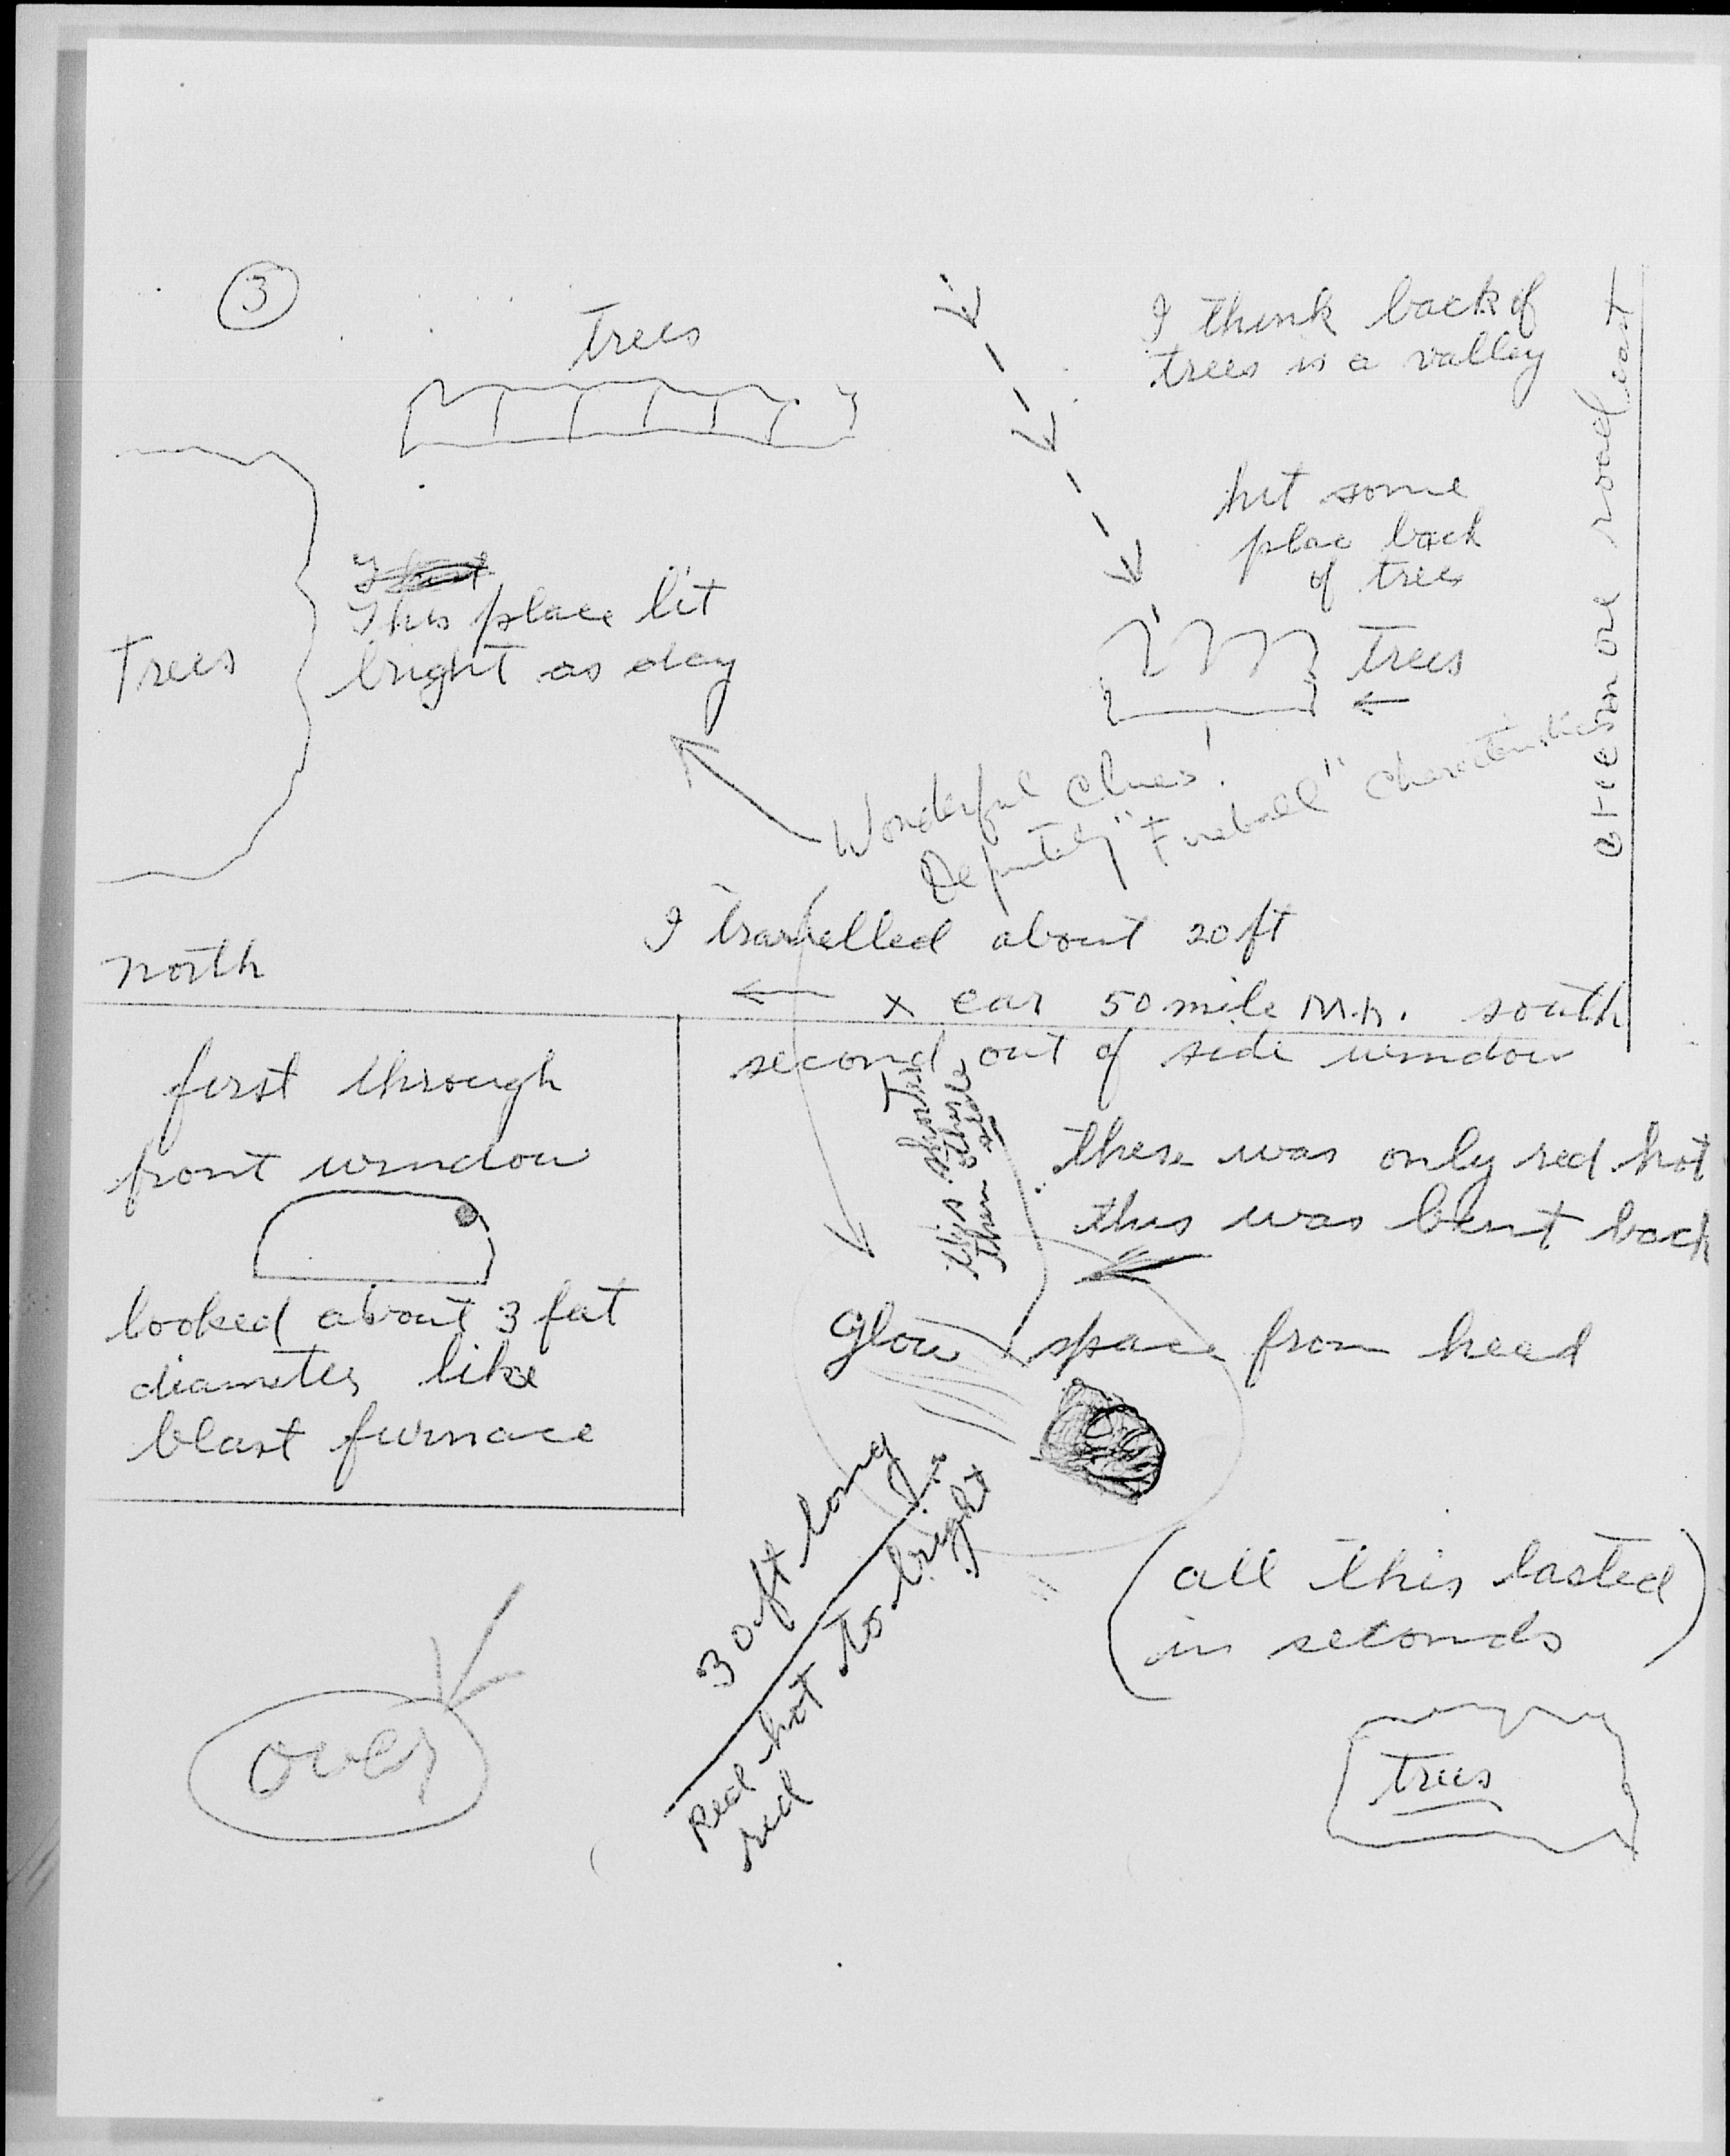 3
trees
I think back of
trees is a valley
hit some
plac back
of trees
trees
Trees
This place lit
bright as day
road east
Wonderful Clues!
Definitely "Fireball" Characteristics
I travelled about 20 ft
north
x car 50 mile M.h. south
second, out of side window
first through
front window
looked about 3 feet
diameter like
blast furnace
this shorter
then other
side
there was only red hot
this was bent back
Glow space from head
30 ft long
Red hot to bright
red
(all this lasted
in seconds)
over
trees